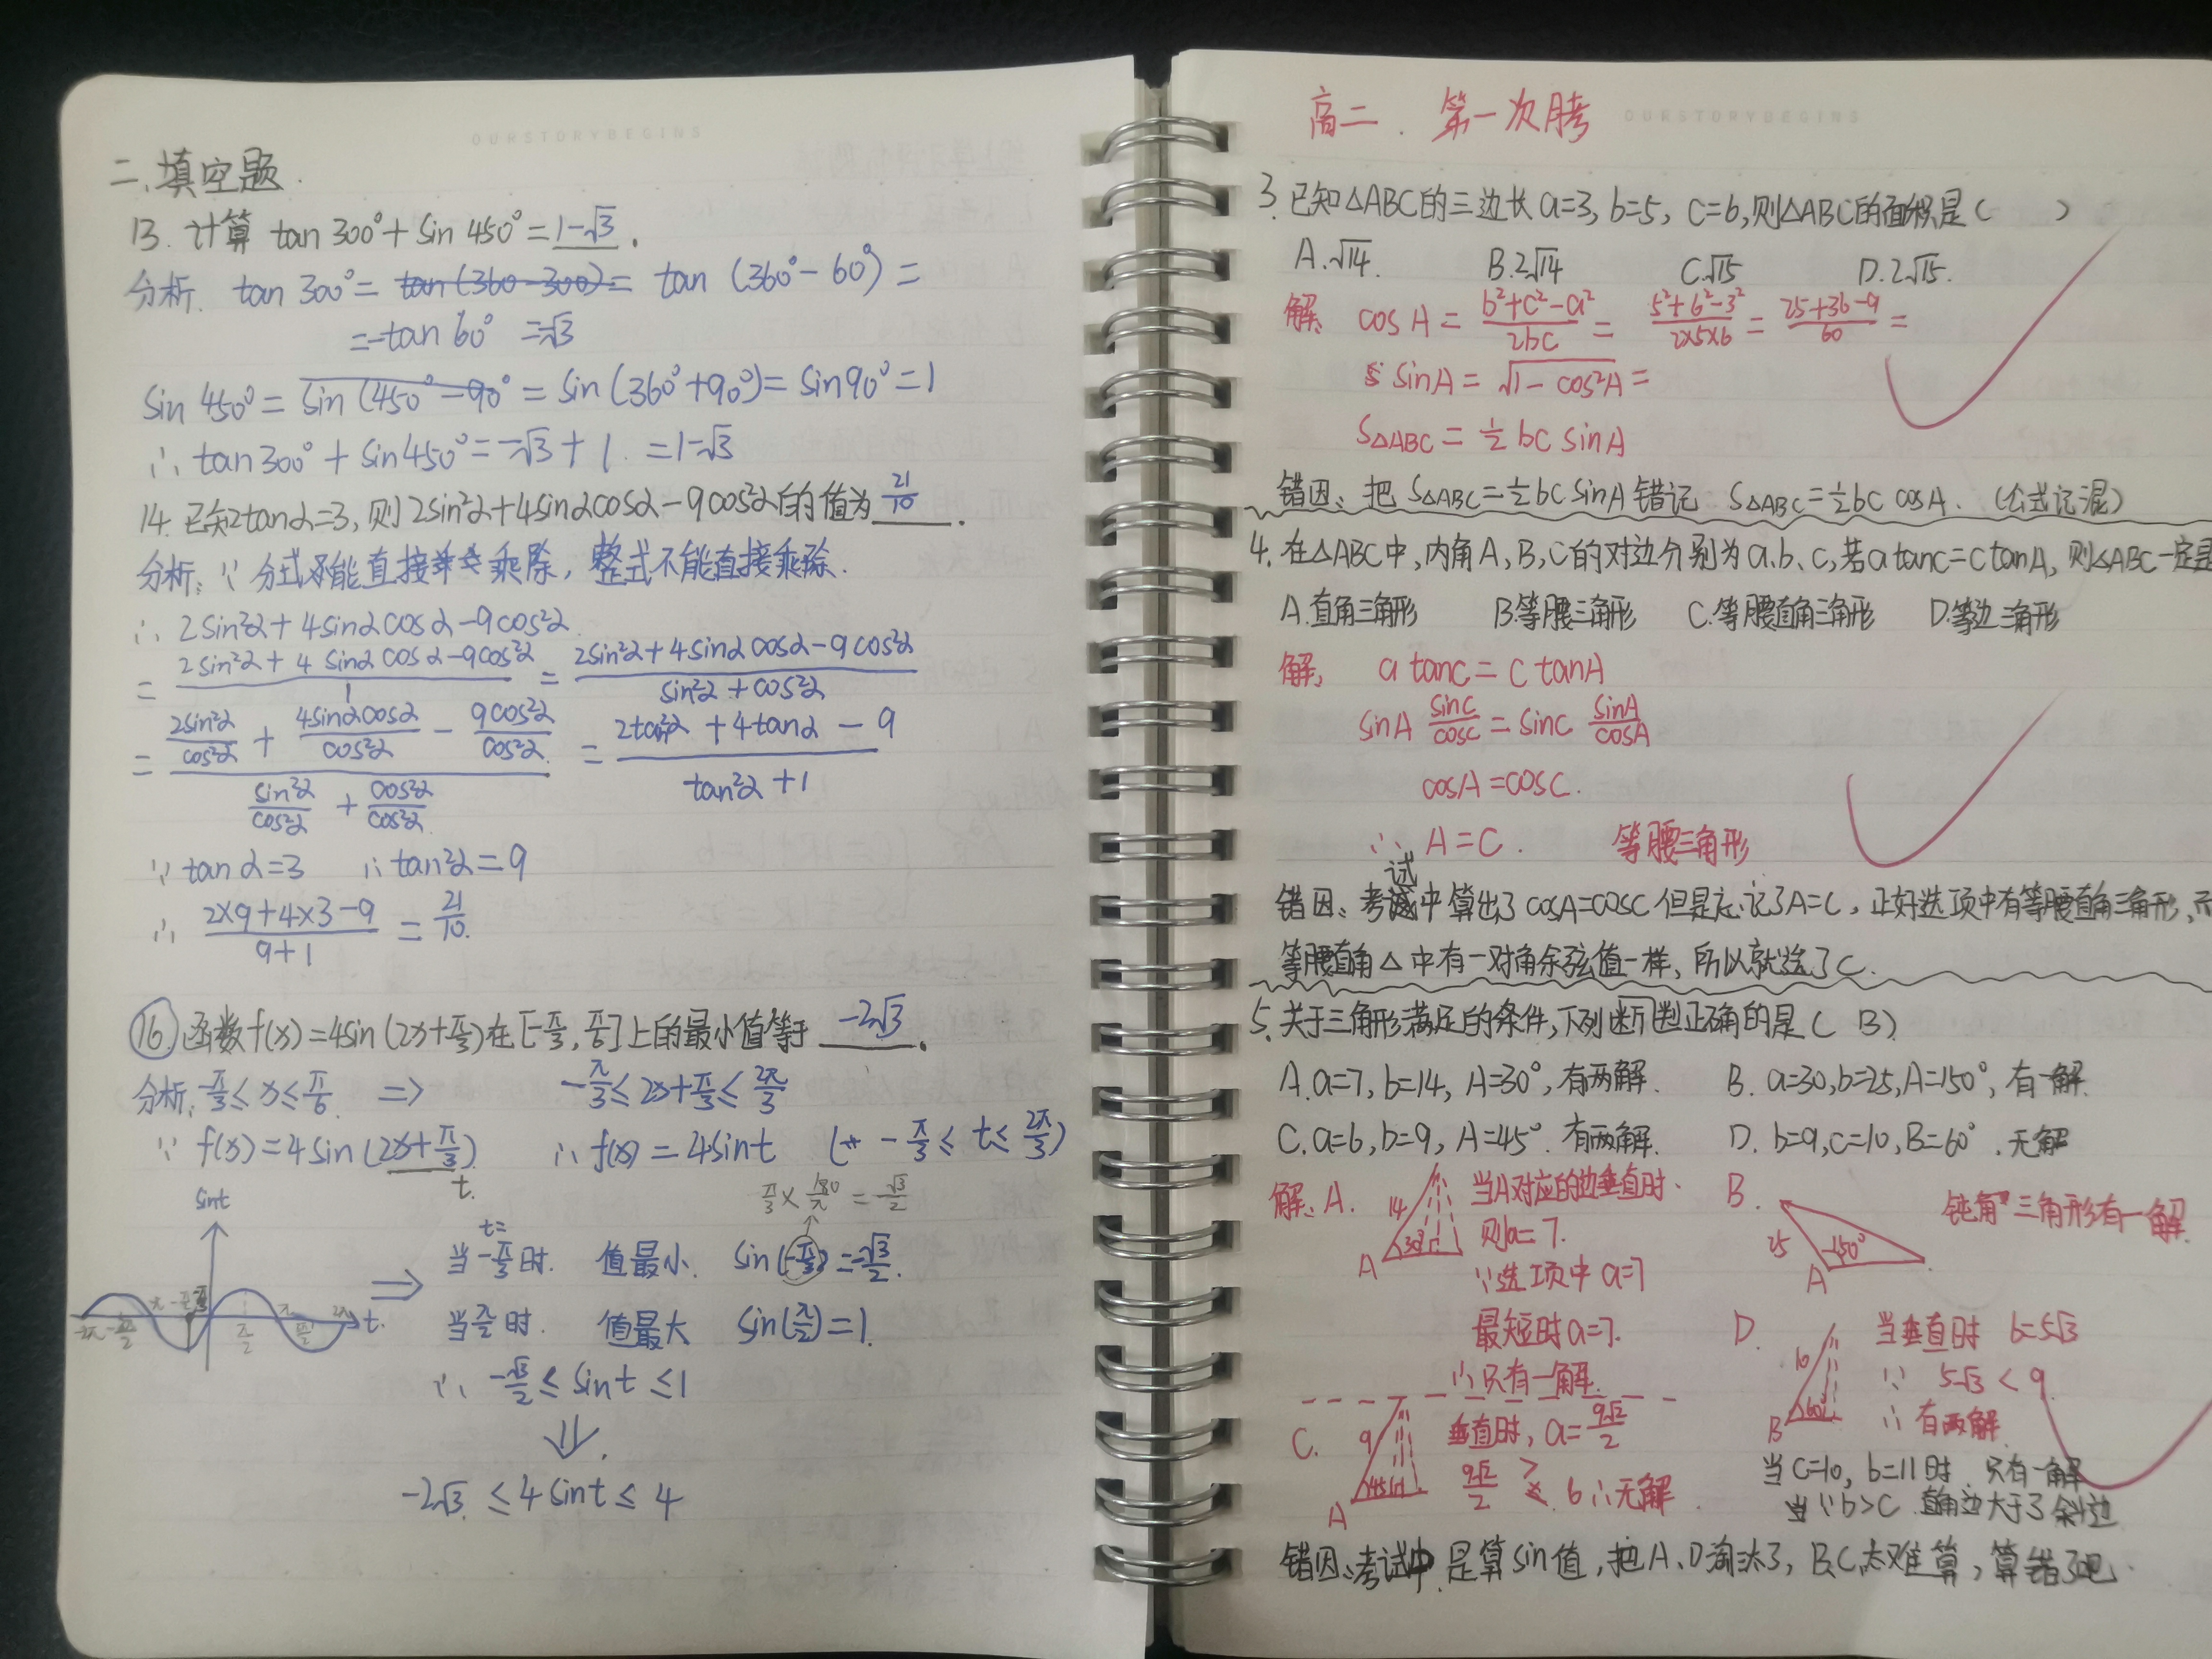 OURSTORYBEGINS
二、填空题.
13. 计算 tan 300° + sin 450° = 1-√3 .
分析. tan 300° = tan(360-300) = tan (360° - 60°) =
= -tan 60° = -√3
sin 450° = sin (450° - 90° = sin (360° + 90°) = sin 90° = 1
∴ tan 300° + sin 450° = -√3 + 1. = 1-√3
14. 已知tanα=3, 则 2sin²α+4sinαcosα-9cos²α的值为 21/10 .
分析: ∵ 分式能直接乘除, 整式不能直接乘除.
∴ 2sin²α + 4sinαcosα - 9cos²α
= (2sin²α + 4 sinαcosα - 9cos²α)/1 = (2sin²α + 4sinαcosα - 9cos²α)/(sin²α + cos²α)
= (2sin²α/cos²α + 4sinαcosα/cos²α - 9cos²α/cos²α)/(sin²α/cos²α + cos²α/cos²α) = (2tan²α + 4tanα - 9)/(tan²α + 1)
∵ tanα=3 ∴ tan²α=9
∴ (2×9+4×3-9)/(9+1) = 21/10.
⑯ 函数f(x)=4sin(2x+π/3)在[-π/3, π/6]上的最小值等于 -2√3 .
分析: -π/3 ≤ x ≤ π/6. => -π/3 ≤ 2x+π/3 ≤ 2π/3
∵ f(x)=4sin(2x+π/3) ∴ f(x) = 4sint (-π/3 ≤ t ≤ 2π/3)
t.
π/3 × 180/π = -√3/2
sint
t=
当-π/3时. 值最小. sin(-π/3) = -√3/2.
当π/2时. 值最大 sin(π/2) = 1.
-2π -3π/2 -π -π/2 -π/3 π/2 π 3π/2 2π t.
∴ -√3/2 ≤ sint ≤ 1
⇓
-2√3 ≤ 4sint ≤ 4
高二. 第一次月考
OURSTORYBEGINS
3. 已知△ABC的三边长a=3, b=5, c=6,则△ABC的面积是( )
A.√14. B.2√14 C.√15 D.2√15.
解: cosA = (b²+c²-a²)/2bc = (5²+6²-3²)/(2×5×6) = (25+36-9)/60 =
sinA = √(1-cos²A) =
S△ABC = ½ bc sinA
错因: 把 S△ABC=½bc sinA 错记 S△ABC=½bc cosA. (公式记混)
4. 在△ABC中,内角A,B,C的对边分别为a.b、c,若a tanC=c tanA, 则△ABC一定是
A.直角三角形 B.等腰三角形 C.等腰直角三角形 D.等边三角形
解: a tanC = c tanA
sinA sinC/cosC = sinC sinA/cosA
cosA = cosC.
∴ A=C. 等腰三角形
错因: 考试中算出了cosA=cosC但是忘记了A=C, 正好选项中有等腰直角三角形,而
等腰直角△中有一对角余弦值一样, 所以就选了C.
5. 关于三角形满足的条件,下列判断正确的是( B)
A.a=7, b=14, A=30°, 有两解. B. a=30,b=25,A=150°, 有一解.
C.a=6, b=9, A=45°. 有两解. D. b=9,c=10,B=60°. 无解
解: A. 14 30° A 当A对应的边垂直时.
则a=7.
∵选项中 a=7
最短时a=7.
∴只有一解.
B. 25 150° A 钝角三角形有一解.
C. 9 45° A 垂直时, a=9√2/2
9√2/2 > 6 ∴无解.
D. 10 60° B 当垂直时 b=5√3
∵ 5√3 < 9
∴ 有两解
当c=10, b=11时. 只有一解
∵b>c 直角边大于了斜边
错因: 考试中是算sin值, 把A、D淘汰了, B、C太难算, 算错了吧.